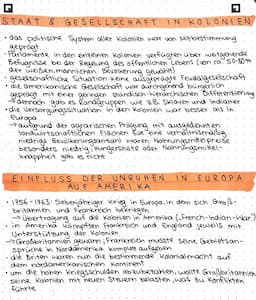 STAAT & GESELLSCHAFT IN KOLONIEN
• das politische System aller Kolonien war von Mitbestimmung
geprägt
• Parlamente in den einzelnen Kolonien verfügten über weitgehende
Befugnisse bei der Regelung des öffentlichen Lebens (von ca. 50-80%
der weißen, männlichen Bevölkerung gewählt)
• gesellschaftliche Situation keine ausgeprägte Feudalgesellschaft
• die amerikanische Gesellschaft war durchgehend bürgerlich
geprägt mit einer geringen ständisch-hierarchischen Differenzierung
→ dennoch gab es Randgruppen wie z.B. Sklaven und Indianer
• die Versorgungssituation in den Kolonien war besser als in
Europa
→ aufgrund der agrarischen Prägung mit ausgedehnten
landwirtschaftlichen Flächen für eine verhältnismäßig
niedrige Bevölkerungsanzahl waren Nahrungsmittelpreise
besonders niedrig, Hungersnöte oder Nahrungsmittel-
knappheit gab es nicht
EINFLUSS DER UNRUHEN IN EUROPA
AUF AMERIKA
• 1756-1763: Siebenjähriger Krieg in Europa, in dem sich Groß-
britannien und Frankreich bekriegen
→ Übertragung auf die Kolonien in Amerika ("French-Indian-War")
• in Amerika kämpften Frankreich und England jeweils mit
Unterstützung der Kolonien
→ Großbritannien gewann, Frankreich musste seine Gebietsan-
sprüche in Nordamerika komplett aufgeben
• die Briten waren nun die bestimmende Kolonialmacht auf
dem nordamerikanischen Kontinent
• um die hohen Kriegsschulden abzubezahlen, wollte Großbritannien
seine Kolonien mit neuen Steuern belasten, was zu Konflikten
führte